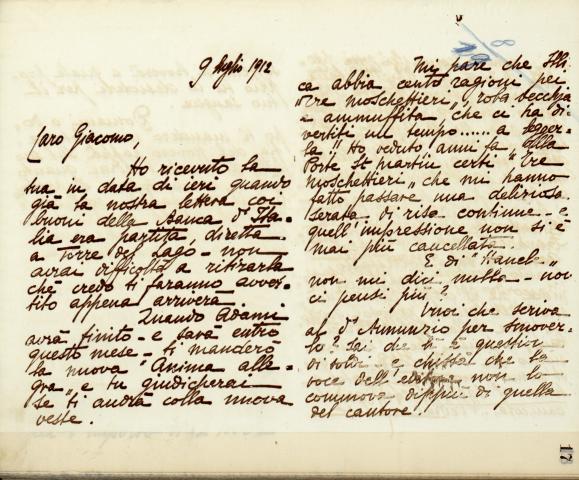 9 luglio 1912
Caro Giacomo,
Ho ricevuto la
tua in data di ieri quando
già la nostra lettera coi
buoni della Banca d'Ita-
lia era partita, diretta
a Torre del Lago - non
avrai difficoltà a ritirarla
chè credo ti faranno avver-
tito appena arriverà.
Quando Adami
avrà finito - e sarà entro
questo mese - ti manderò
la nuova "Anima alle-
gra" e tu giudicherai
se ti andrà colla nuova
veste.
8
Mi pare che Illi-
ca abbia cento ragioni pei
"Tre moschettieri", roba vecchia
e ammuffita, che ci ha di-
vertiti un tempo...... a legger-
la!! Ho veduto anni fa, alla
Porte St Martin certi "Tre
moschettieri" che mi hanno
fatto passare una deliziosa
serata di risa continue - e
quell'impressione non si è
mai più cancellata.
E di "Hanele"
non mi dici nulla - non
ci pensi più?
Vuoi che scriva
al d'Annunzio per smover-
lo? Sai che lì è question
di soldi e chissà che la
voce dell' non lo
commova dippiù di quella
del cantore.
17